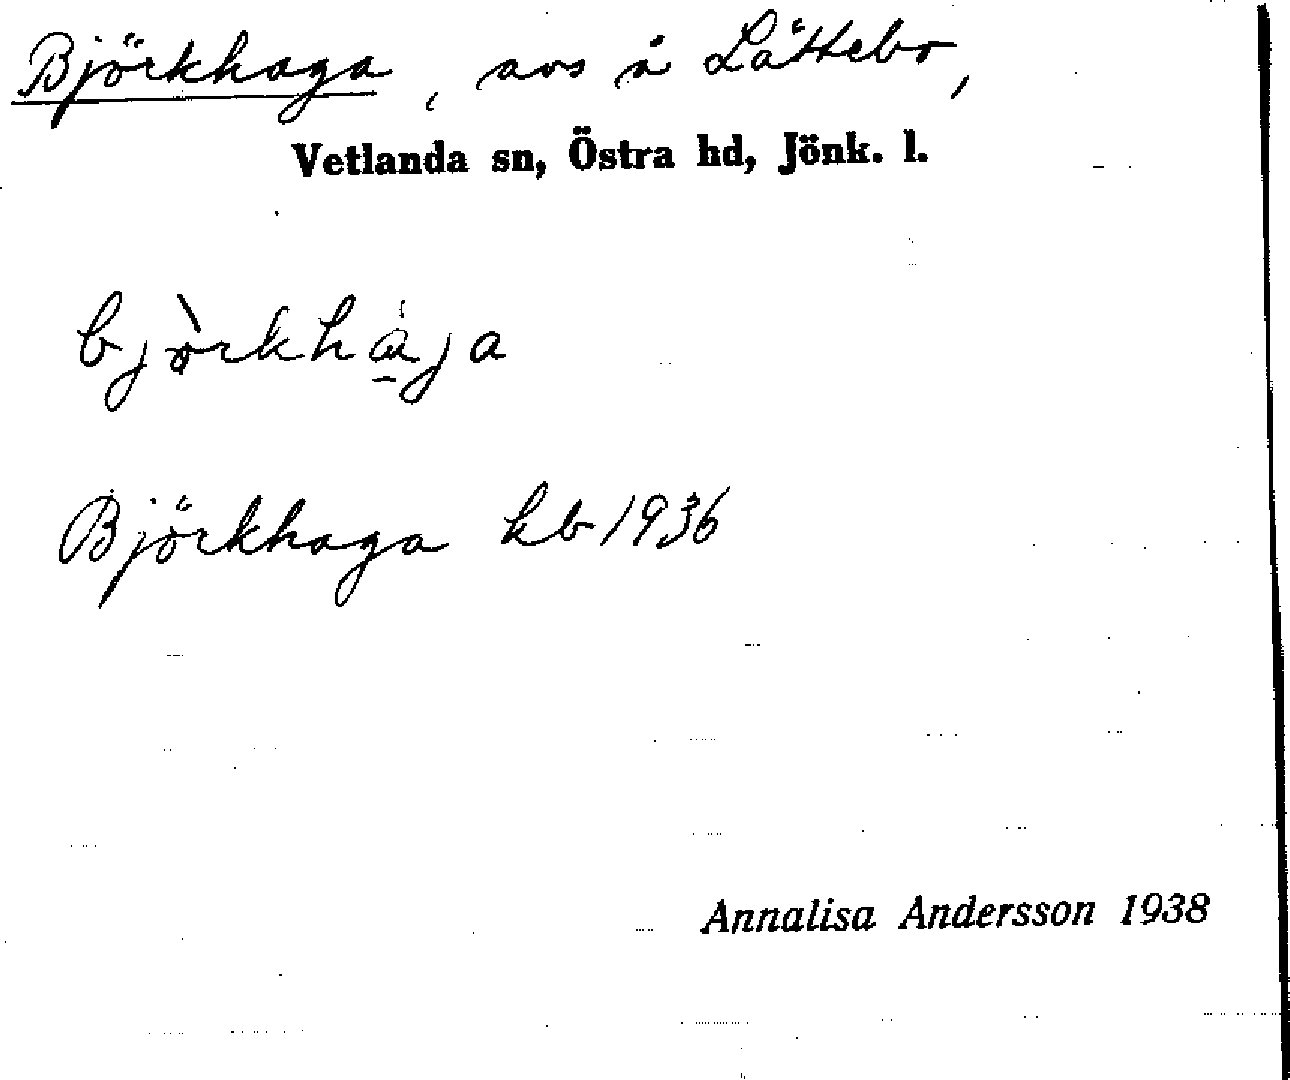 Björkhaga, avs å Lättebo,
Vetlanda sn, Östra hd, Jönk. l.
bjòrkhága
Björkhaga kb 1936
Annalisa Andersson 1938